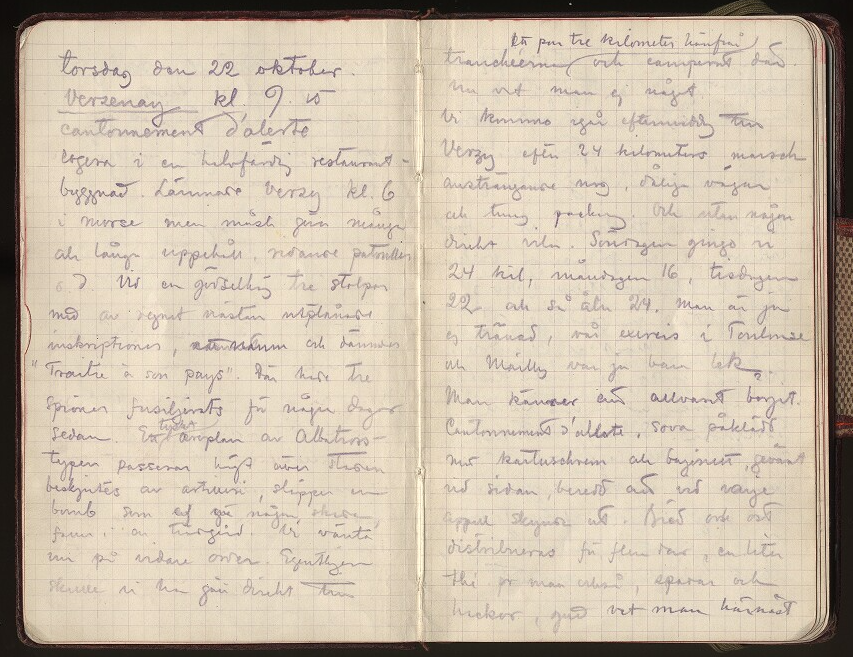 torsdag den 22 oktober.
Verzenay kl. 9.15
cantonnement d'alerte
logera i en halvfärdig restaurant-
byggnad. Lämnade Verzy kl. 6
i morse men många
och långa uppehåll, ridande patruller
o d Vid en gödselhög tre stolpar
med av regnet nästan utplånade
inskriptioner, namn och därunder
"Traitre à son pays". Där hade tre
spioner fusiljerats för några dagar
sedan. Ett tyskt aeroplan av Albatros-
typen passerar högt över staden
beskjutes av artilleri, släpper en
bomb som ej gör någon skada,
faran är Vi vänta
nu på vidare order. Egentligen
skulle vi ha gått direkt till
ett par tre kilometer härifrån
tranchéerna och camperat där
nu vet man ej något.
Vi kommo igår eftermiddag till
Verzy efter 24 kilometers marsch
ansträngande nog, dåliga vägar
och tung packning. Och utan någon
direkt vila. Söndagen gingo vi
24 kil, måndagen 16, tisdagen
22 och så åter 24. Man är ju
ej tränad, vår exercis i Toulouse
och Mailly var ju bara lek.
Man känner att allvaret börjat.
Cantonnement d'alerte, sova påklädd
med kartuschrem och bajonett, geväret
vid sidan, beredd att vid varje
appel skynda ut. Bröd och ost
distribueras för flera dar, en liter
thé per man också, sparar och
knckor, gud vet man härnäst